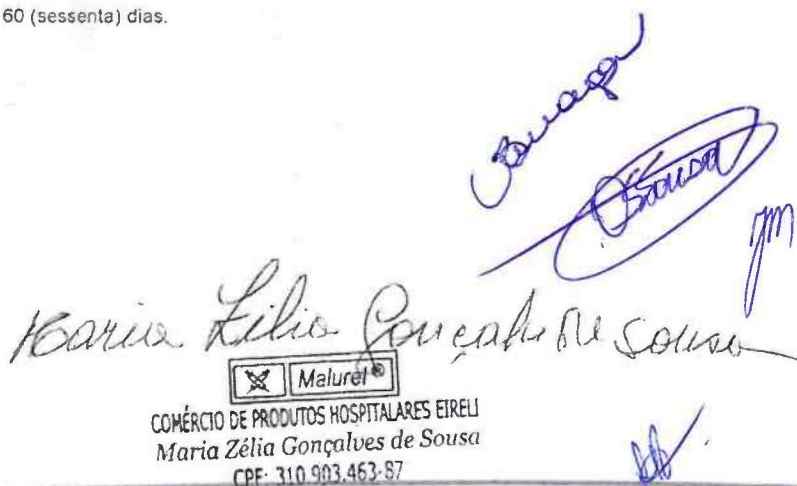 60 (sessenta) dias.
Sousa
Maria Zélia Gonçalves de Sousa
Malurel®
COMÉRCIO DE PRODUTOS HOSPITALARES EIRELI
Maria Zélia Gonçalves de Sousa
CPF: 310.903.463-87